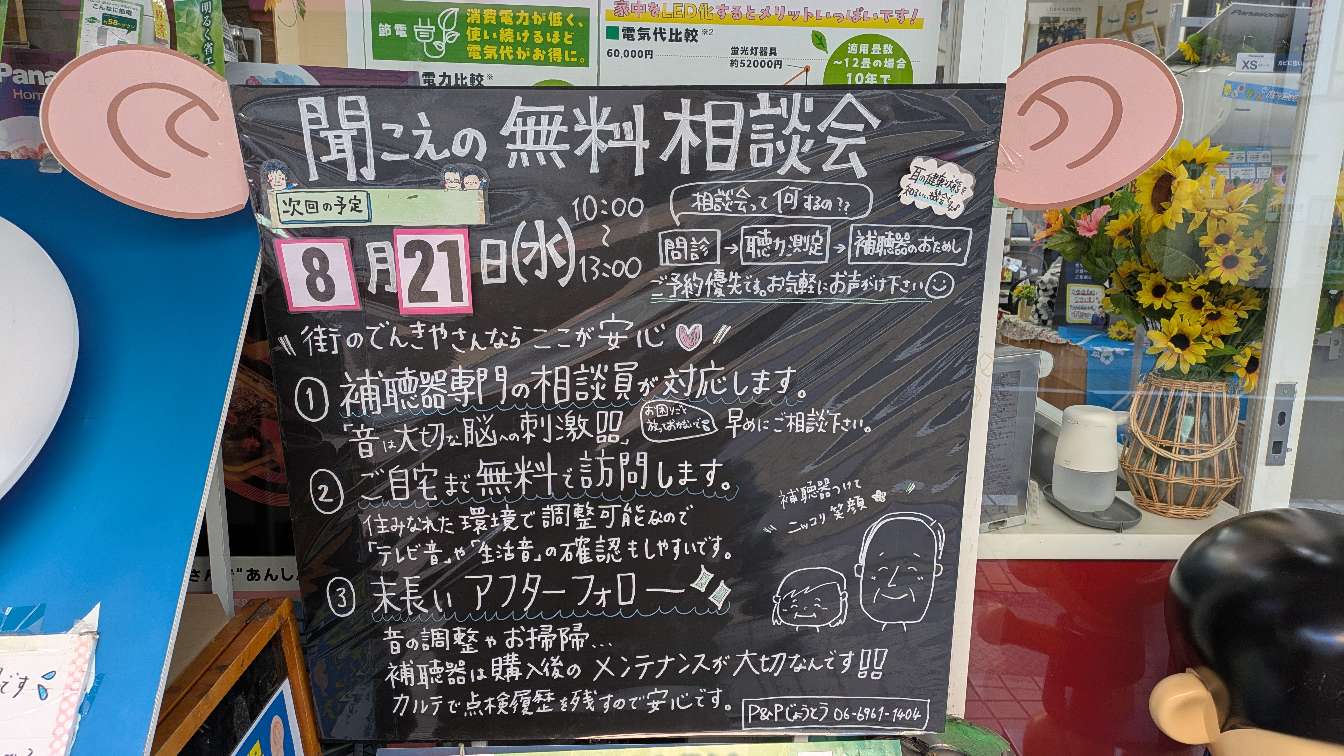 節電
消費電力が低く、
使い続けるほど
電気代がお得に。
電力比較※
家中をLED化するとメリットいっぱいです!
電気代比較※2
60,000円
蛍光灯器具
約52000円
適用畳数
~12畳の場合
10年で
Pana
Hom
Panasonic
XS
聞こえの無料相談会
次回の予定
8月21日(水)
10:00
~
13:00
相談会って何するの??
問診→聴力測定→補聴器のおためし
ご予約優先です。お気軽にお声がけ下さい
街のでんきやさんなら ここが安心
① 補聴器専門の相談員が対応します。
「音は大切な脳への刺激!!」
お困りごと
放っておかないで
早めにご相談下さい。
② ご自宅まで無料で訪問します。
住みなれた環境で調整可能なので
「テレビ音」や「生活音」の確認もしやすいです。
補聴器つけて
ニッコリ笑顔
③ 末長い アフターフォロー
音の調整やお掃除...
補聴器は購入後のメンテナンスが大切なんです!!
カルテで点検履歴を残すので安心です。
P&Pじょうとう 06-6961-1404
です